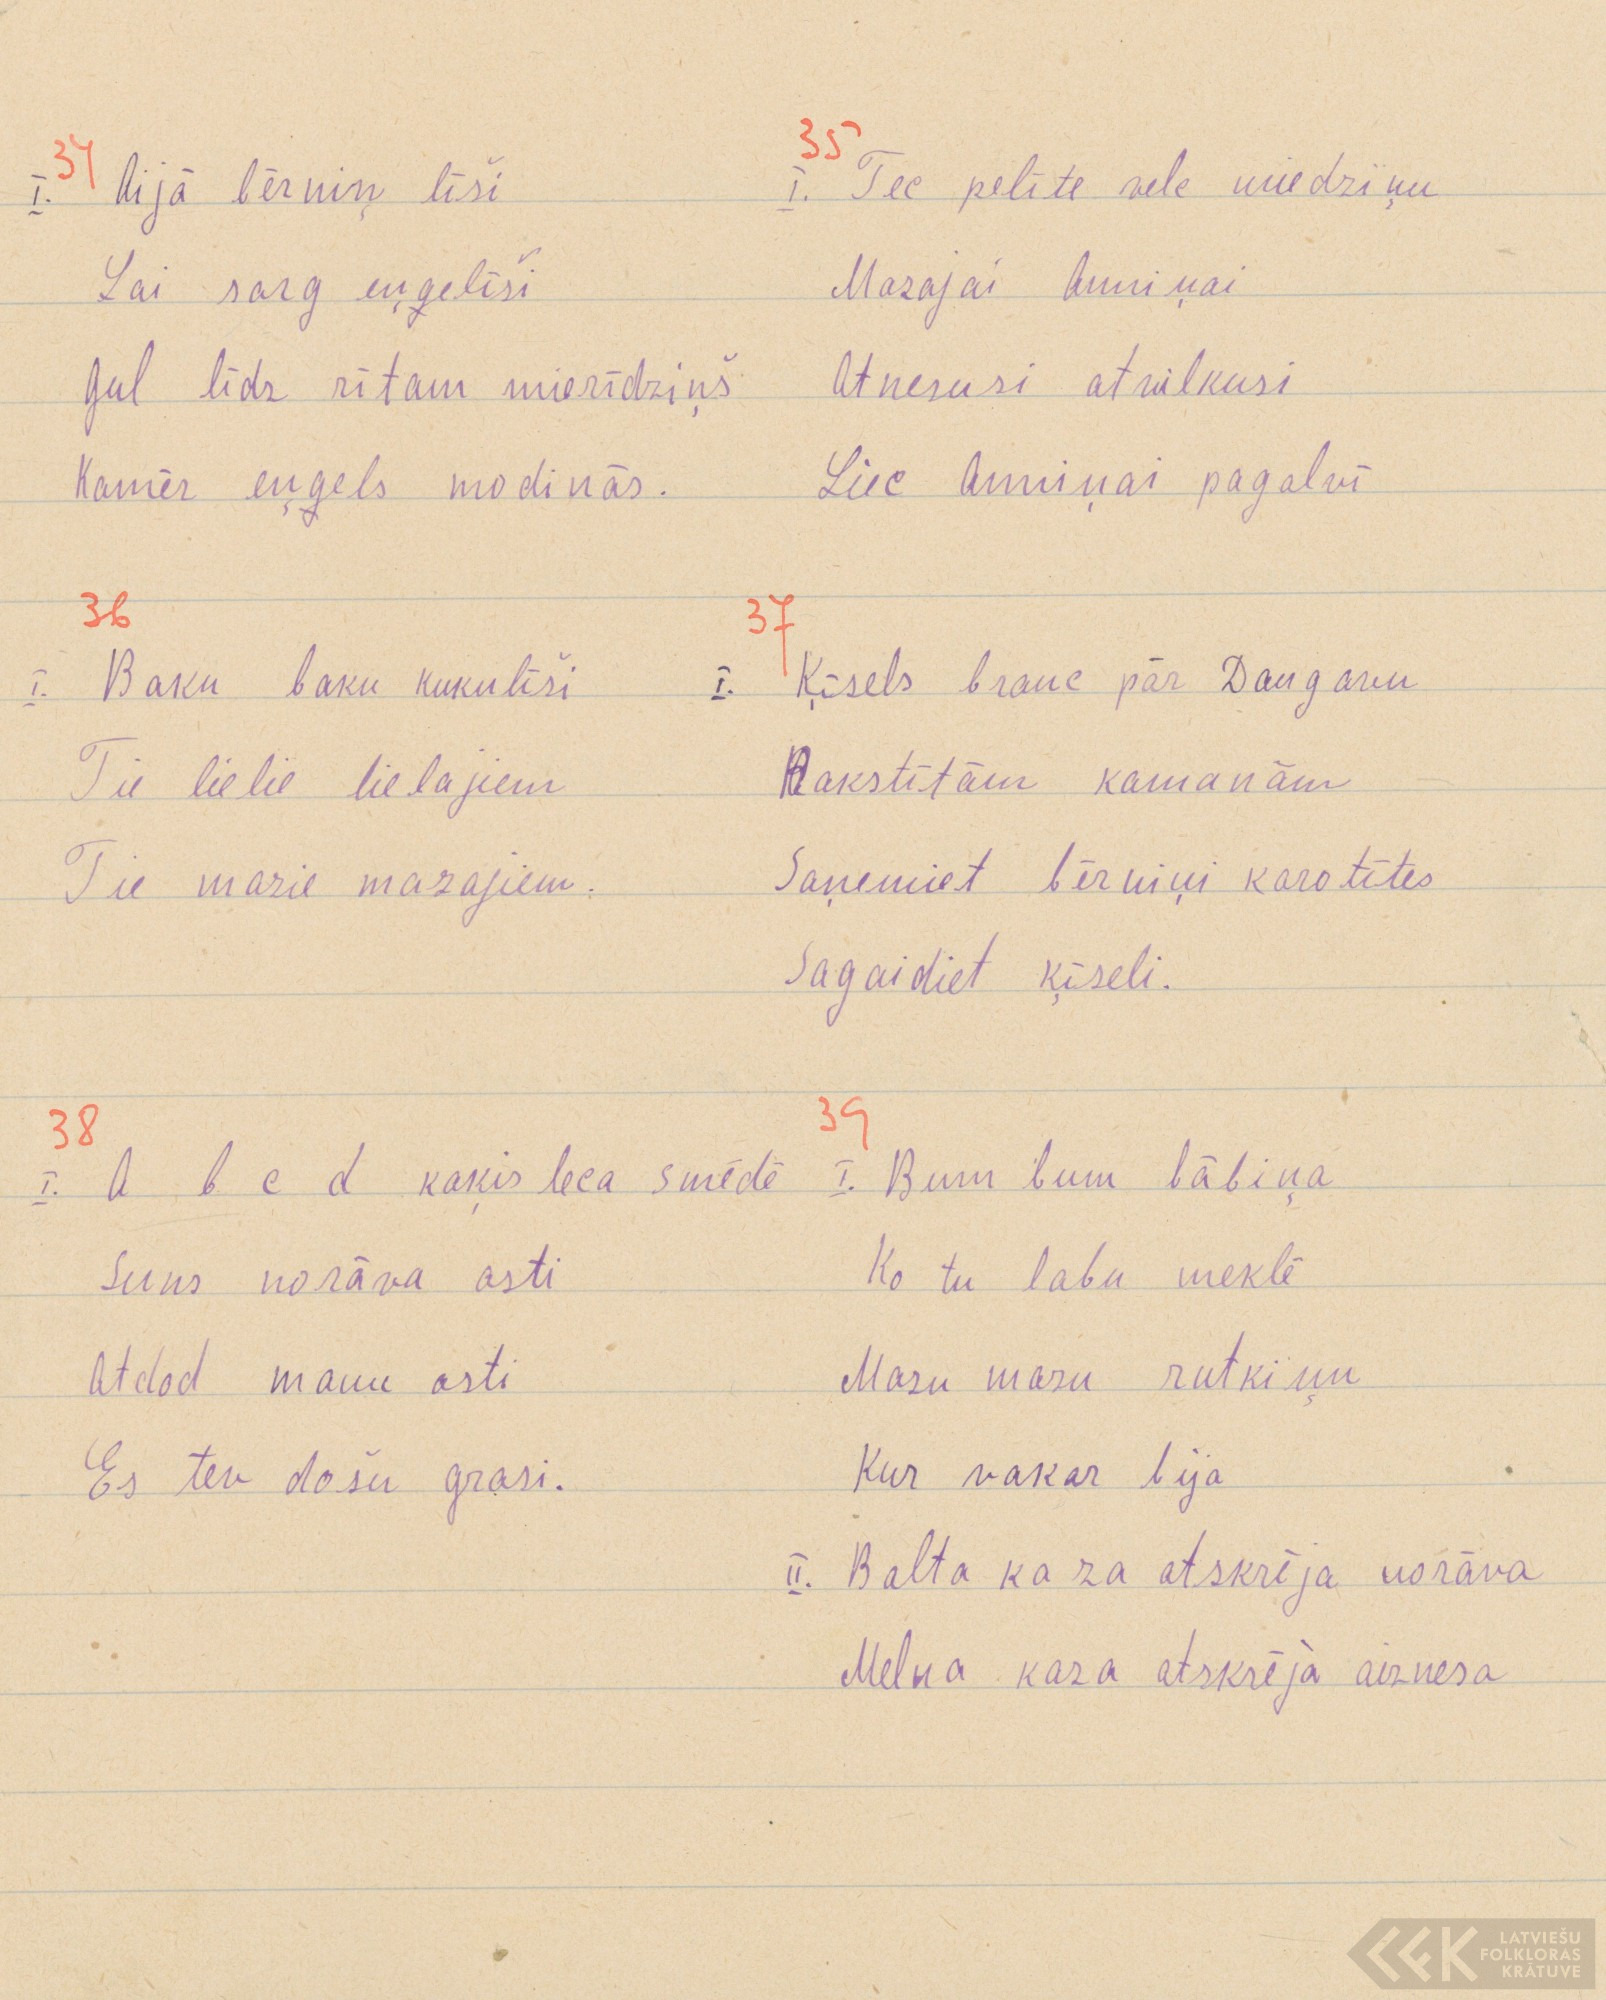 34
I. Aijā bērniņ līši
Lai sarg eņģelīši
Gul līdz rītam mierīdziņš
Kamēr eņģels modinās.
35
I. Tec pelīte velc miedziņu
Mazajai Anniņai
Atnesusi atvilkusi
Liec Anniņai pagalvī
36
I. Baku baku kukulīši
Tie lielie lielajiem
Tie mazie mazajiem.
37
I. Ķīsels brauc pār Daugavu
Rakstītām kamanām
Saņemiet bērniņi karotītes
Sagaidiet ķīseli.
38
I. A b c d kaķis leca smēdē
Suns norāva asti
Atdod manu asti
Es tev došu grasi.
39
I. Bum bum bābiņa
Ko tu labu meklē
Mazu mazu rutkiņu
Kur vakar bija
II. Balta kaza atskrēja norāva
Melna kaza atskrēja aiznesa
LATVIEŠU
FOLKLORAS
KRĀTUVE